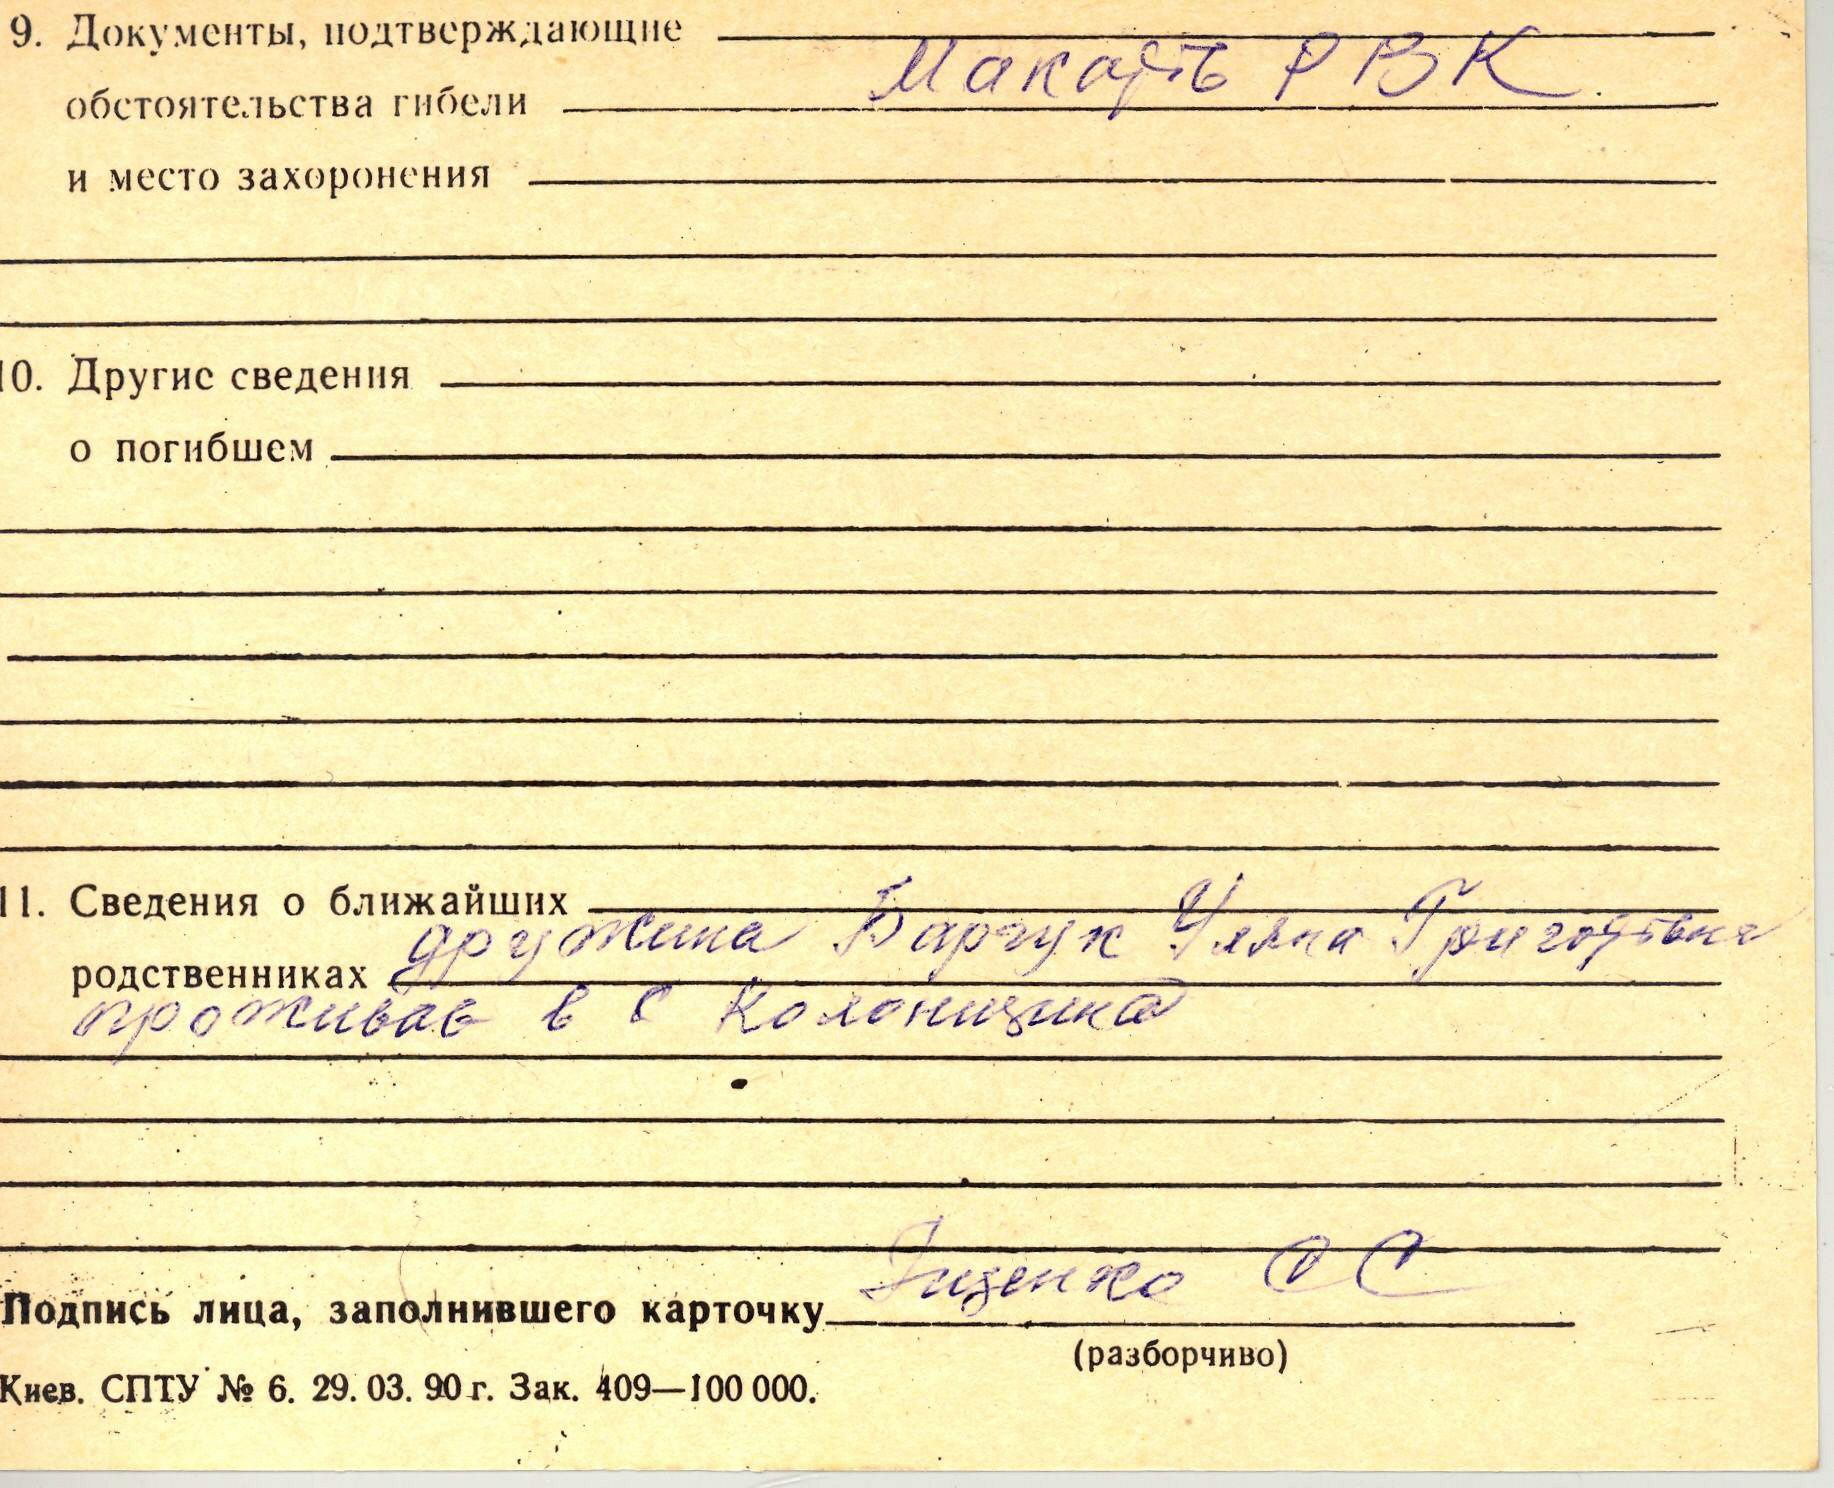 9. Документы, подтверждающие
Макарів РВК.
обстоятельства гибели
и место захоронения
10. Другие сведения
о погибшем
11. Сведения о ближайших
дружина Барчук Уляна Григорівна
родственниках
проживає в с Колонщина
Іщенко С С
Подпись лица, заполнившего карточку
(разборчиво)
Киев. СПТУ № 6. 29. 03. 90 г. Зак. 409—100 000.